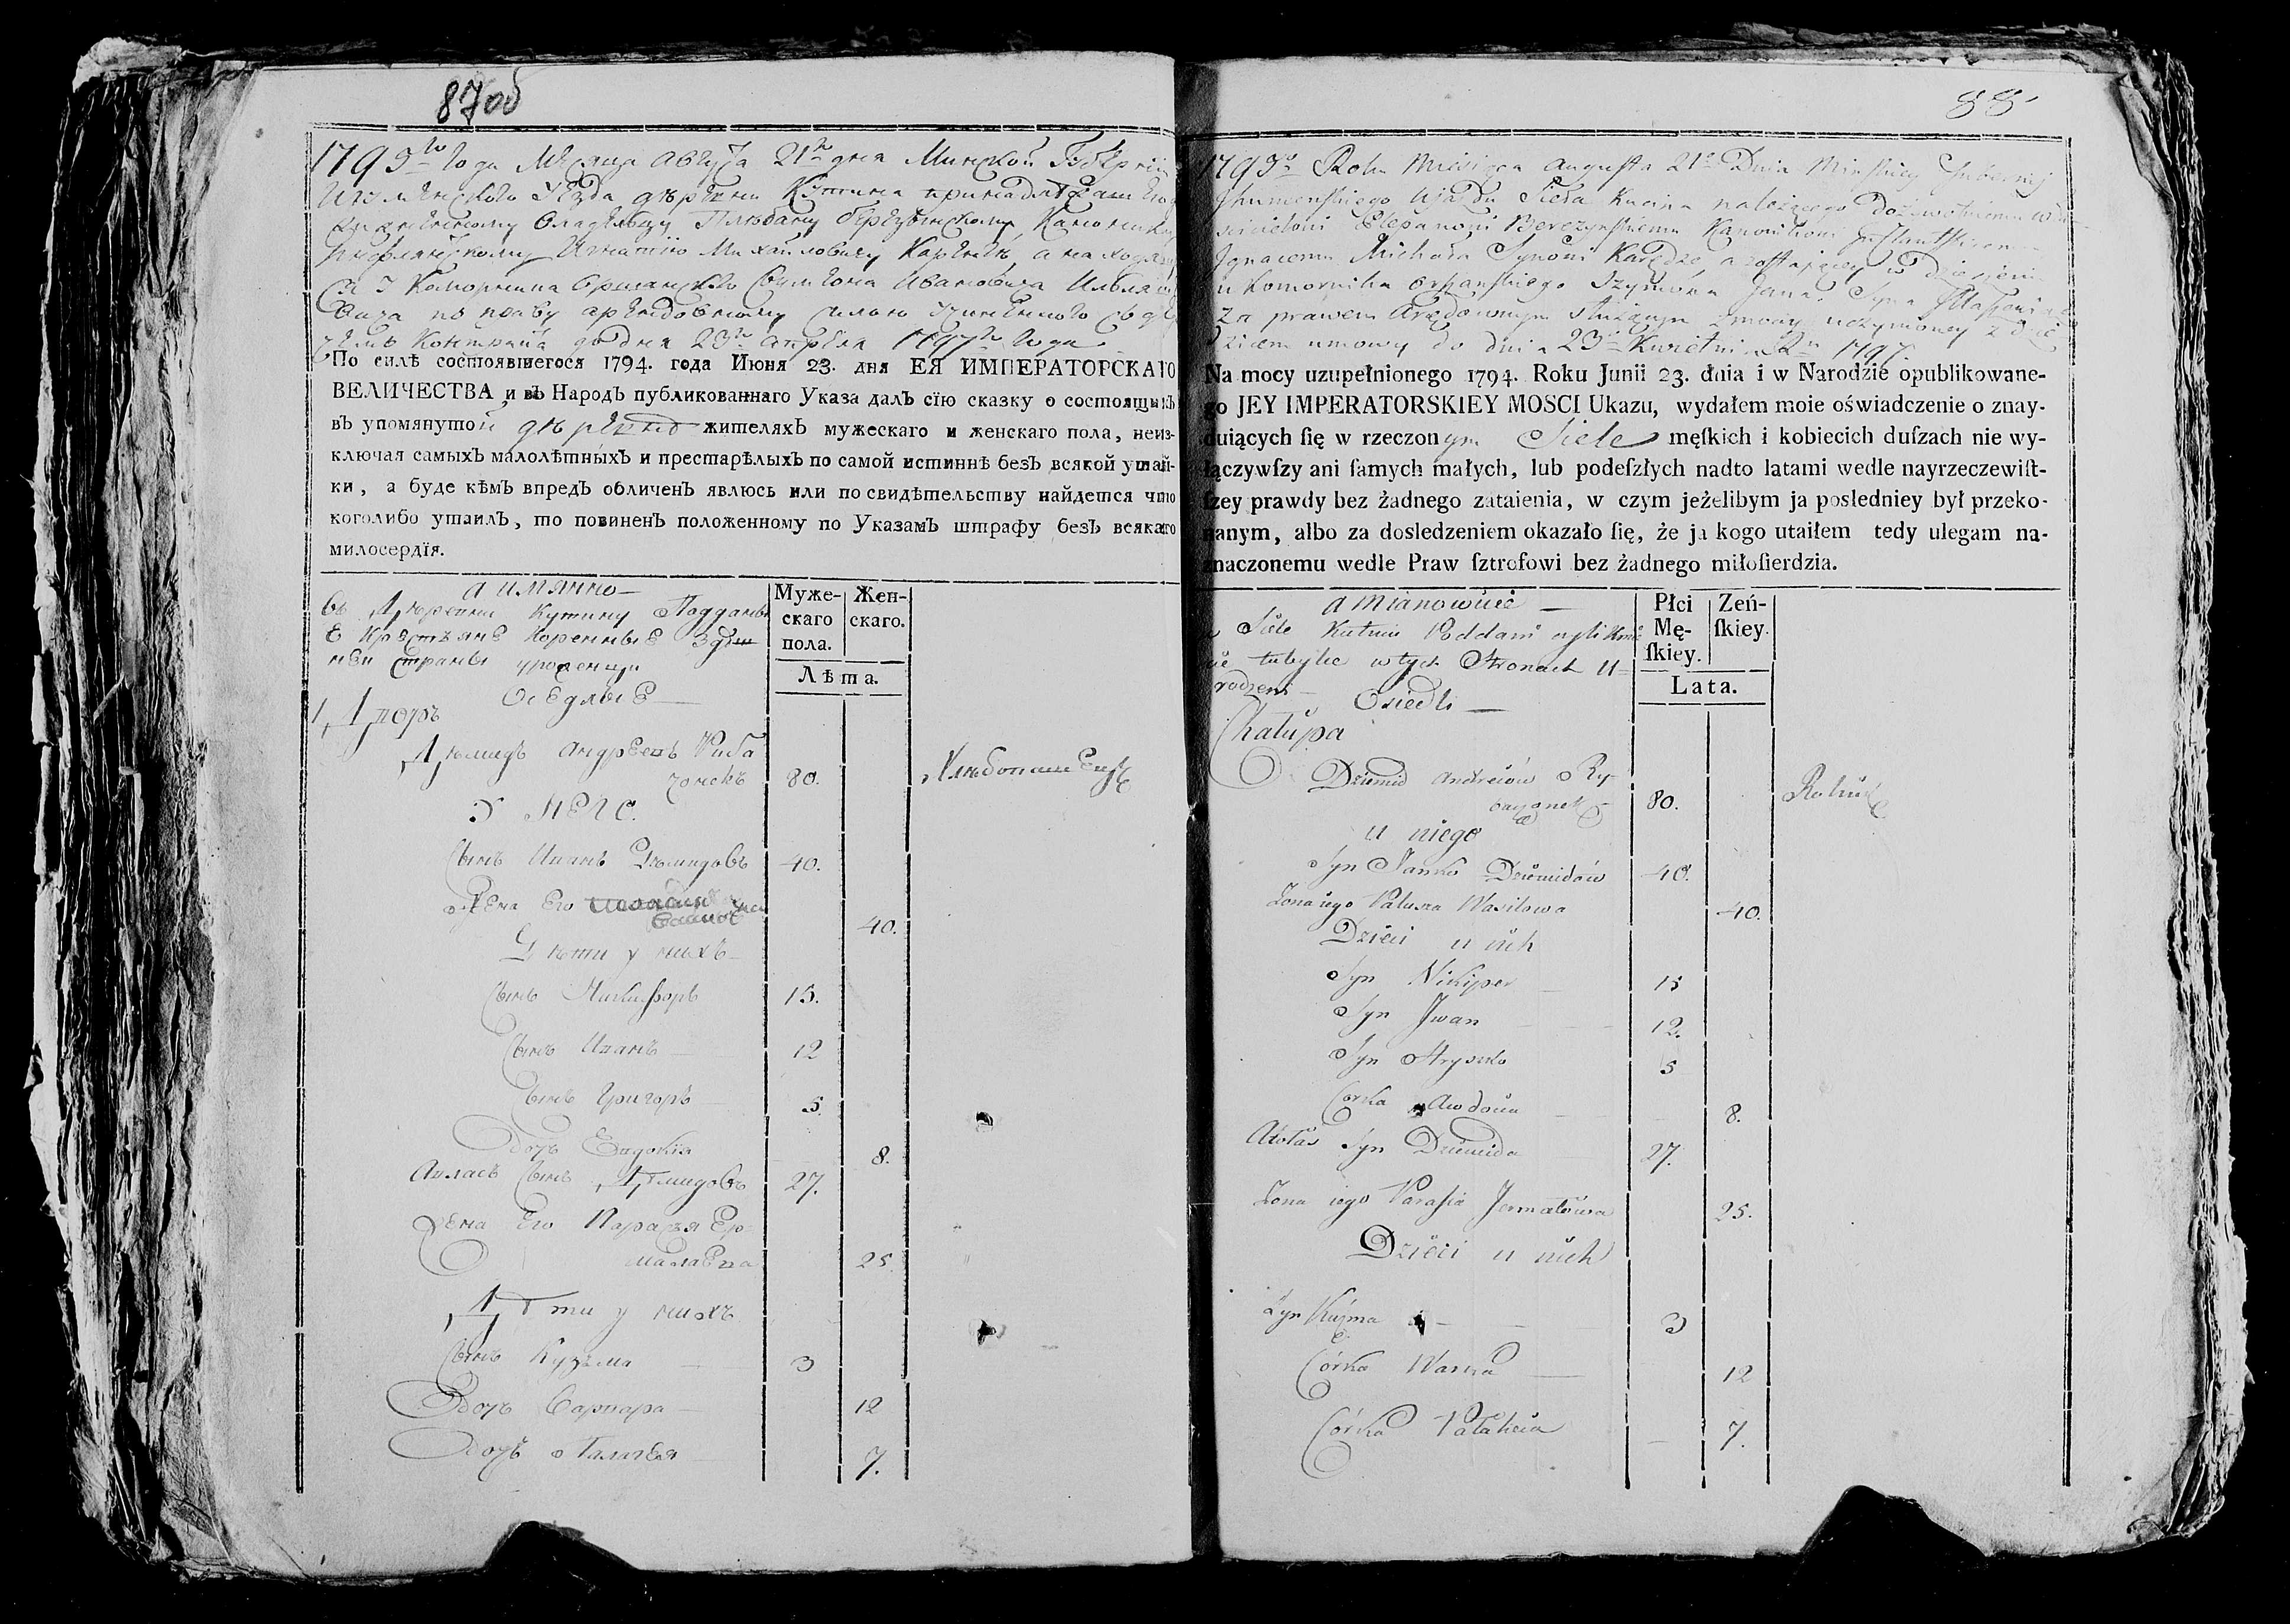 87 об
1795го Года Месяца Августа 21го дня Минской Губернии
Игуменского Уезда деревни Кутина принадлежащей
владельцу Плебану Березынскому, Канонику
Инфлянскому Игнатию Михайловичу Кареиде, а находя
ся у Коморника Оршанского Шимона Ивановича
по праву арендовному силою учиненного с
Контракта до дня 23го апреля 1797го Года
По силѣ состоявшегося 1794. года Июня 23. дня ЕЯ ИМПЕРАТОРСКАГО
ВЕЛИЧЕСТВА и въ Народъ публикованнаго Указа далъ сїю сказку о состоящихъ
въ упомянутой деревне жителяхъ мужескаго и женскаго пола, неиз-
ключая самыхъ малолѣтныхъ и престарѣлыхъ по самой истиннѣ безъ всякой утай-
ки, а буде кѣмъ впредъ обличенъ явлюсь или по свидѣтельству найдется что
коголибо утаилъ, то повиненъ положенному по Указамъ штрафу безъ всякаго
милосердїя.
а имянно
въ деревни Кутину Подданы
е Крестьяне Коренные здеш
ней страны уроженцы
Оседлые
Муже-
скаго
пола.
Жен-
скаго.
Лѣта.
1 Дворъ
Демидъ Андреевъ Риба
чонекъ 80. Хлебопашец
У него
Сынъ Иванъ Демидовъ 40.
Жена Его 40.
Дети у нихъ
Сынъ Никифоръ 15.
Сынъ Иванъ 12
Сынъ Григоръ 5.
Дочъ Евдокия 8.
Авласъ Сынъ Демидовъ 27.
Жена Его Парасья Ер-
малаева 25.
Дети у нихъ
Сынъ Кузьма 3
Дочъ Варвара 12
Дочъ Палагея 7.
88
1795o Roku Miesiąca Augusta 21o Dnia Minskiey Gubernij
Ihumenskiego Ujazdu Sieła Kucina należącego dożywotniemu
Plebanowi Berezynskiemu Kanonikowi Inflantskiemu
Ignacemu Michała Synowi Karędze, a zostającey w dzierżeniu
u Komornika Orszanskiego Szymona Jana Syna
za prawem Arędownym służącym z mocy uczynioney z
umowy do dnia 23o Kwietnia 1797.
Na mocy uzupełnionego 1794. Roku Junii 23. dnia i w Narodzie opublikowane-
go JEY IMPERATORSKIEY MOSCI Ukazu, wydałem moie oświadczenie o znay-
duiących ſię w rzeczonym Siele męſkich i kobiecich duſzach nie wy-
łączywſzy ani ſamych małych, lub podeſzłych nadto latami wedle nayrzeczewiſt-
ſzey prawdy bez żadnego zataienia, w czym jeżelibym ja posledniey był przeko-
nanym, albo za dosledzeniem okazało ſię, że ja kogo utaiłem tedy ulegam na-
znaczonemu wedle Praw ſztrofowi bez żadnego miłoſierdzia.
a mianowicie
w Siele Kutniu Poddani czyli Kmie
cie tuteyſze w tych Stronach u-
rodzeni
Osiedli
Płci
Mę-
ſkiey.
Zeń-
ſkiey.
Lata.
Chałupa
Dziemid Andreiów Ry-
baczonek 80. Rolnik
u niego
Syn Janko Dziemidów 40.
Zona iego Połusza Wasilowa 40.
Dzieci u nich
Syn Nikiper 15
Syn Jwan 12.
Syn Hryszko 5
Corka Awdocia 8.
Awłas Syn Dziemida 27.
Zona iego Parasia Jermałowa 25.
Dzieci u nich
Syn Kuźma 3
Córka Warka 12
Córka Pałaheia 7.